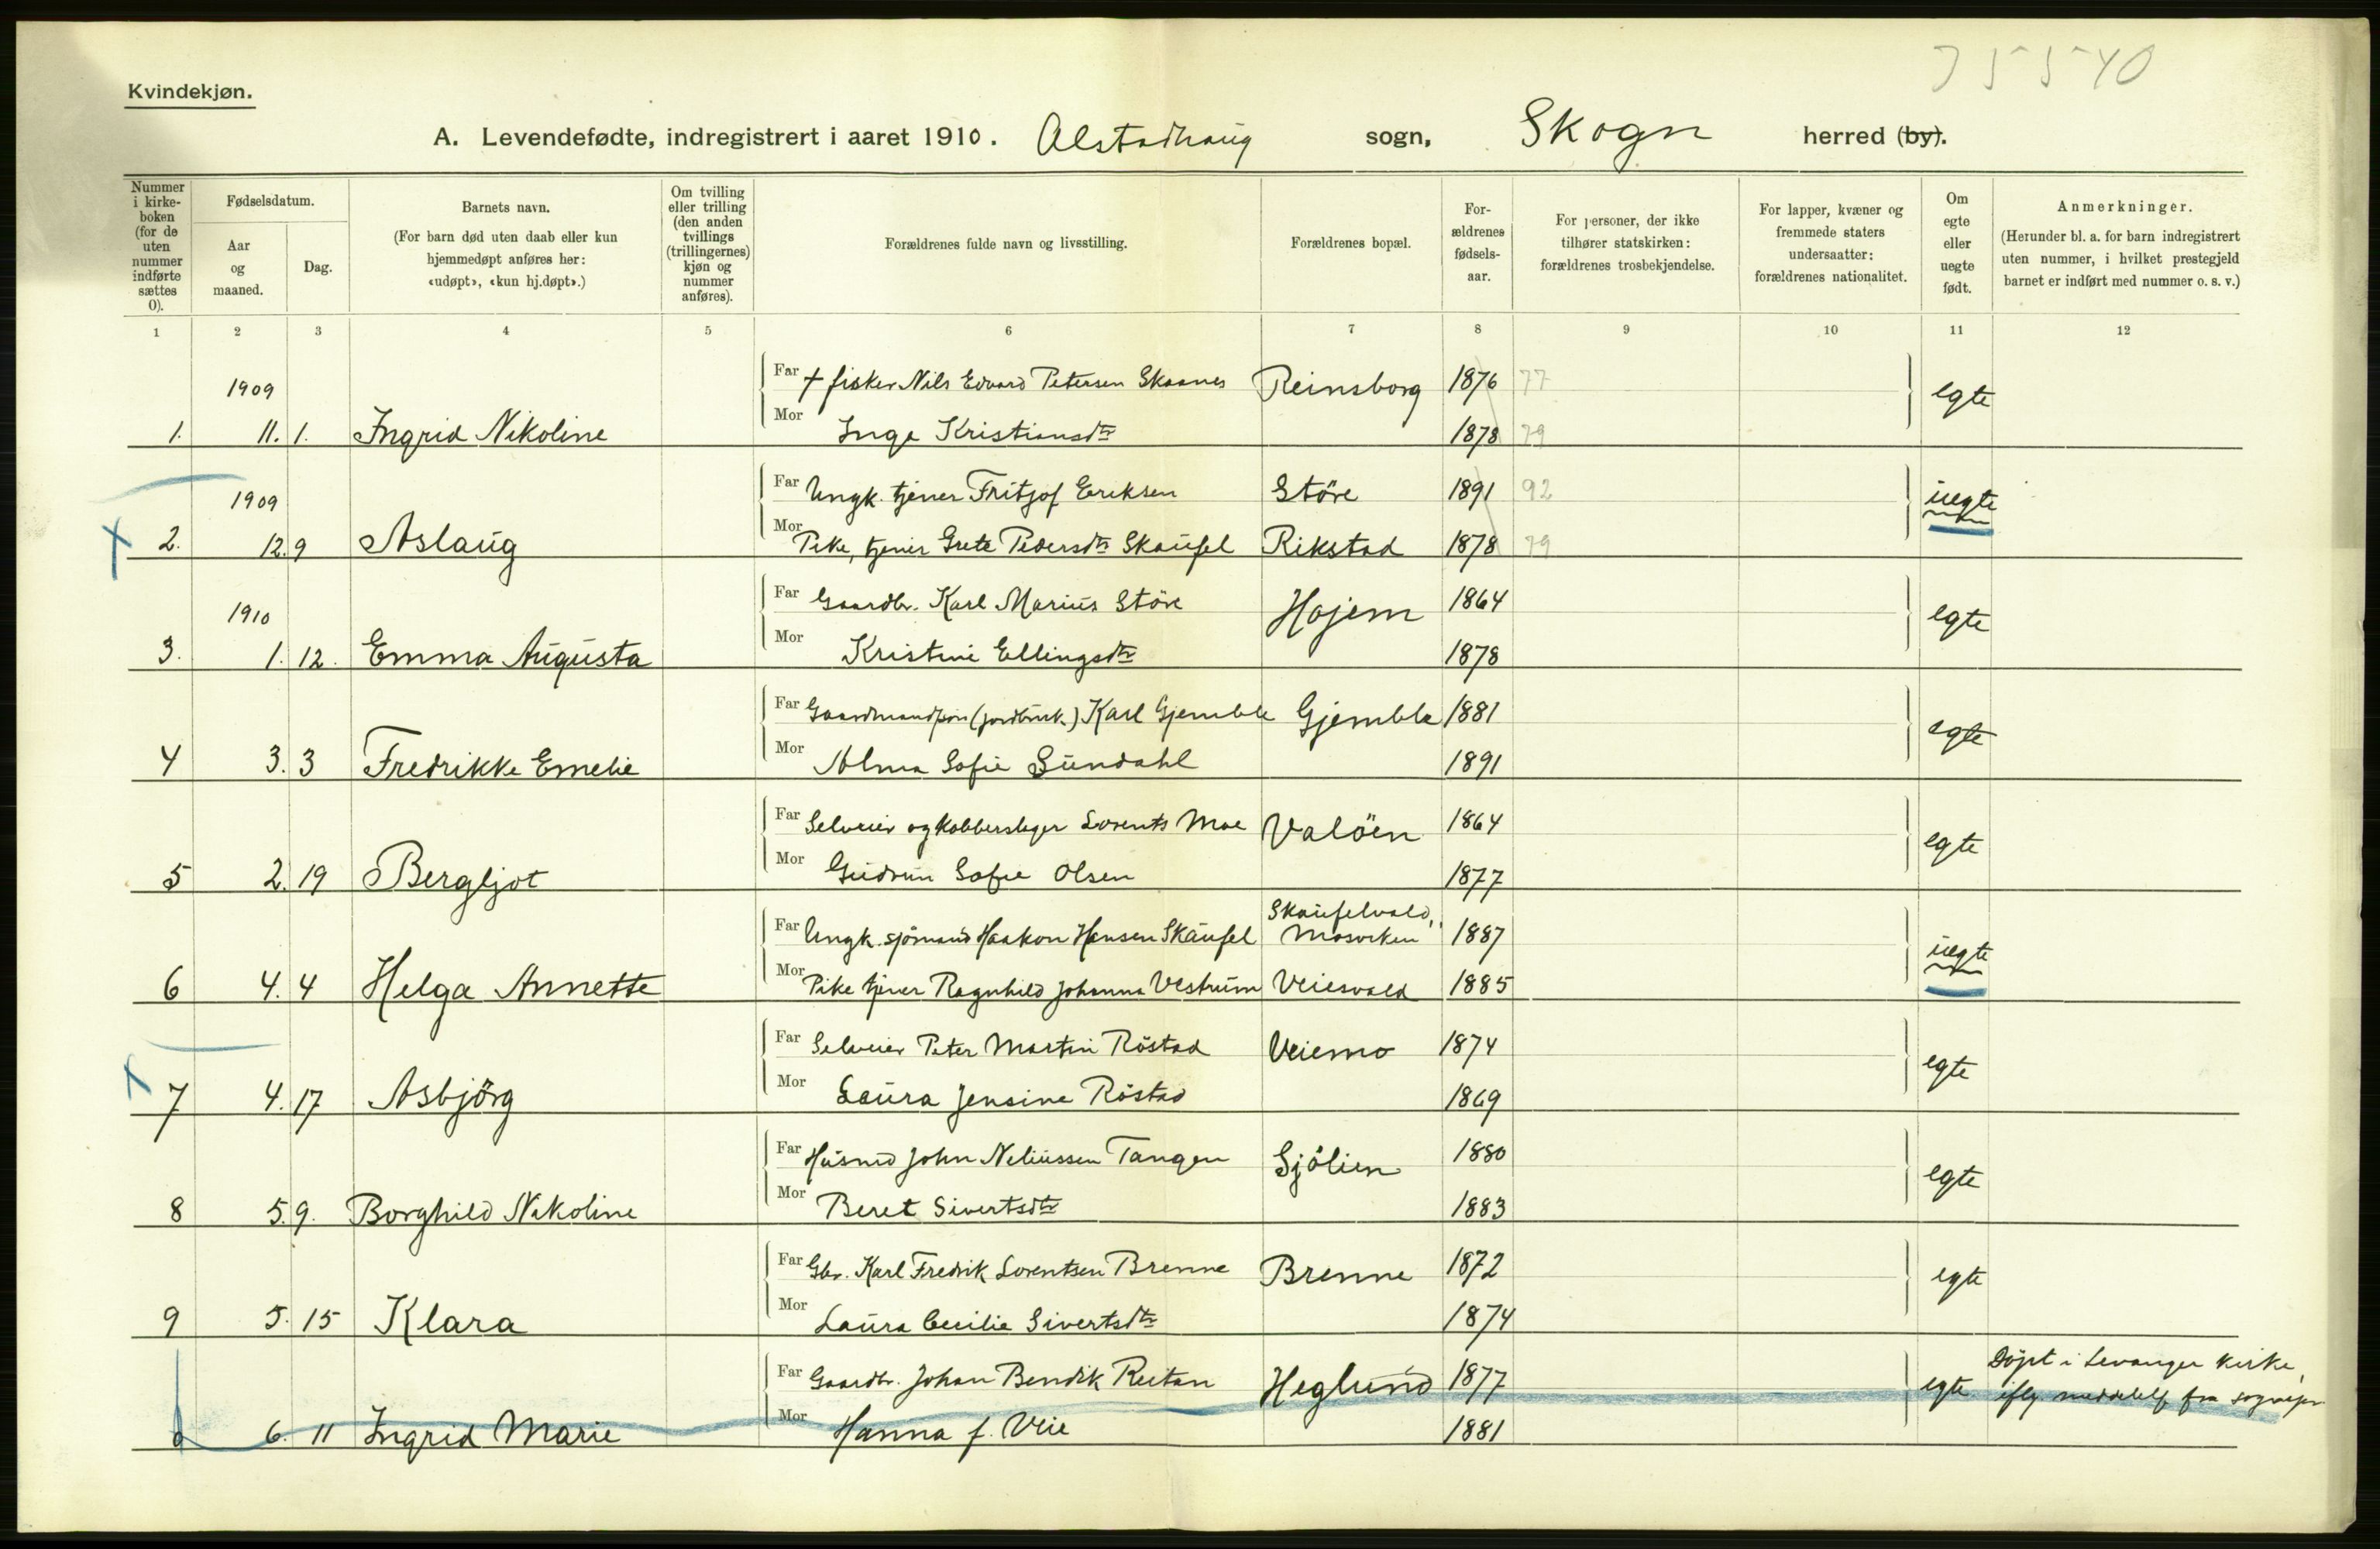 35540
Kvindekjøn.
A. Levendefødte, indregistrert i aaret 1910. Alstadhaug sogn, Skogn herred (by).
Nummer i kirke-boken (for de uten nummer indførte sættes 0).
Fødselsdatum.
Aar og maaned.
Dag.
Barnets navn.
(For barn død uten daab eller kun hjemmedøpt anføres her: «udøpt», «kun hj.døpt».)
Om tvilling eller trilling (den anden tvillings (trillingernes) kjøn og nummer anføres).
Forældrenes fulde navn og livsstilling.
Forældrenes bopæl.
For-ældrenes fødsels-aar.
For personer, der ikke tilhører statskirken: forældrenes trosbekjendelse.
For lapper, kvæner og fremmede staters undersaatter: forældrenes nationalitet.
Om egte eller uegte født.
Anmerkninger.
(Herunder bl. a. for barn indregistrert uten nummer, i hvilket prestegjeld barnet er indført med nummer o. s. v.)
1 2 3 4 5 6 7 8 9 10 11 12
1909
Far † fisker Nils Edvard Petersen Skaanes Reinsborg 1876 77
egte
1. 11. 1. Ingrid Nikoline Mor Inga Kristiansdtr 1878 79
1909
Far Ungk. tjener Fritjof Eriksen Støre 1891 92
uegte
2. 12. 9 Aslaug Mor Pike, tjener Grete Pedersdtr Skaufel Rikstad 1878 79
1910
Far Gaardbr. Karl Marius Støre Hojem 1864
egte
3. 1. 12. Emma Augusta Mor Kristine Ellingsdtr 1878
Far Gaardmandssøn (jordbruk.) Karl Gjemble Gjemble 1881
egte
4 3. 3 Fredrikke Emelie Mor Alma Sofie Sundahl 1891
Far Selveier og kobberslager Lorents Moe Valøen 1864
egte
5 2. 19 Bergljot Mor Gudrun Sofie Olsen 1877
Skaufelvald,
Far Ungk. sjømand Haakon Hansen Skaufel Mosviken 1887
uegte
6 4. 4 Helga Annette Mor Pike tjener Ragnhild Johanna Vestrum Veiesvald 1885
Far Selveier Peter Martin Røstad Veiemo 1874
egte
7 4. 17 Asbjørg Mor Laura Jensine Røstad 1869
Far Husmd John Neliussen Tangen Sjølien 1880
egte
8 5. 9. Borghild Nikoline Mor Beret Sivertsdtr 1883
Far Gbr. Karl Fredrik Lorentsen Brenne Brenne 1872
egte
9 5. 15 Klara Mor Laura Cecilie Sivertsdtr 1874
Døpt i Levanger kirke,
Far Gaardbr. Johan Bendik Reitan Heglund 1877 egte iflg. meddelelse fra sognepr.
6. 11 Ingrid Marie Mor Hanna f. Veie 1881